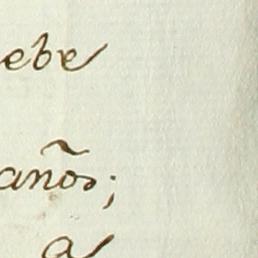 ebe
años;
a